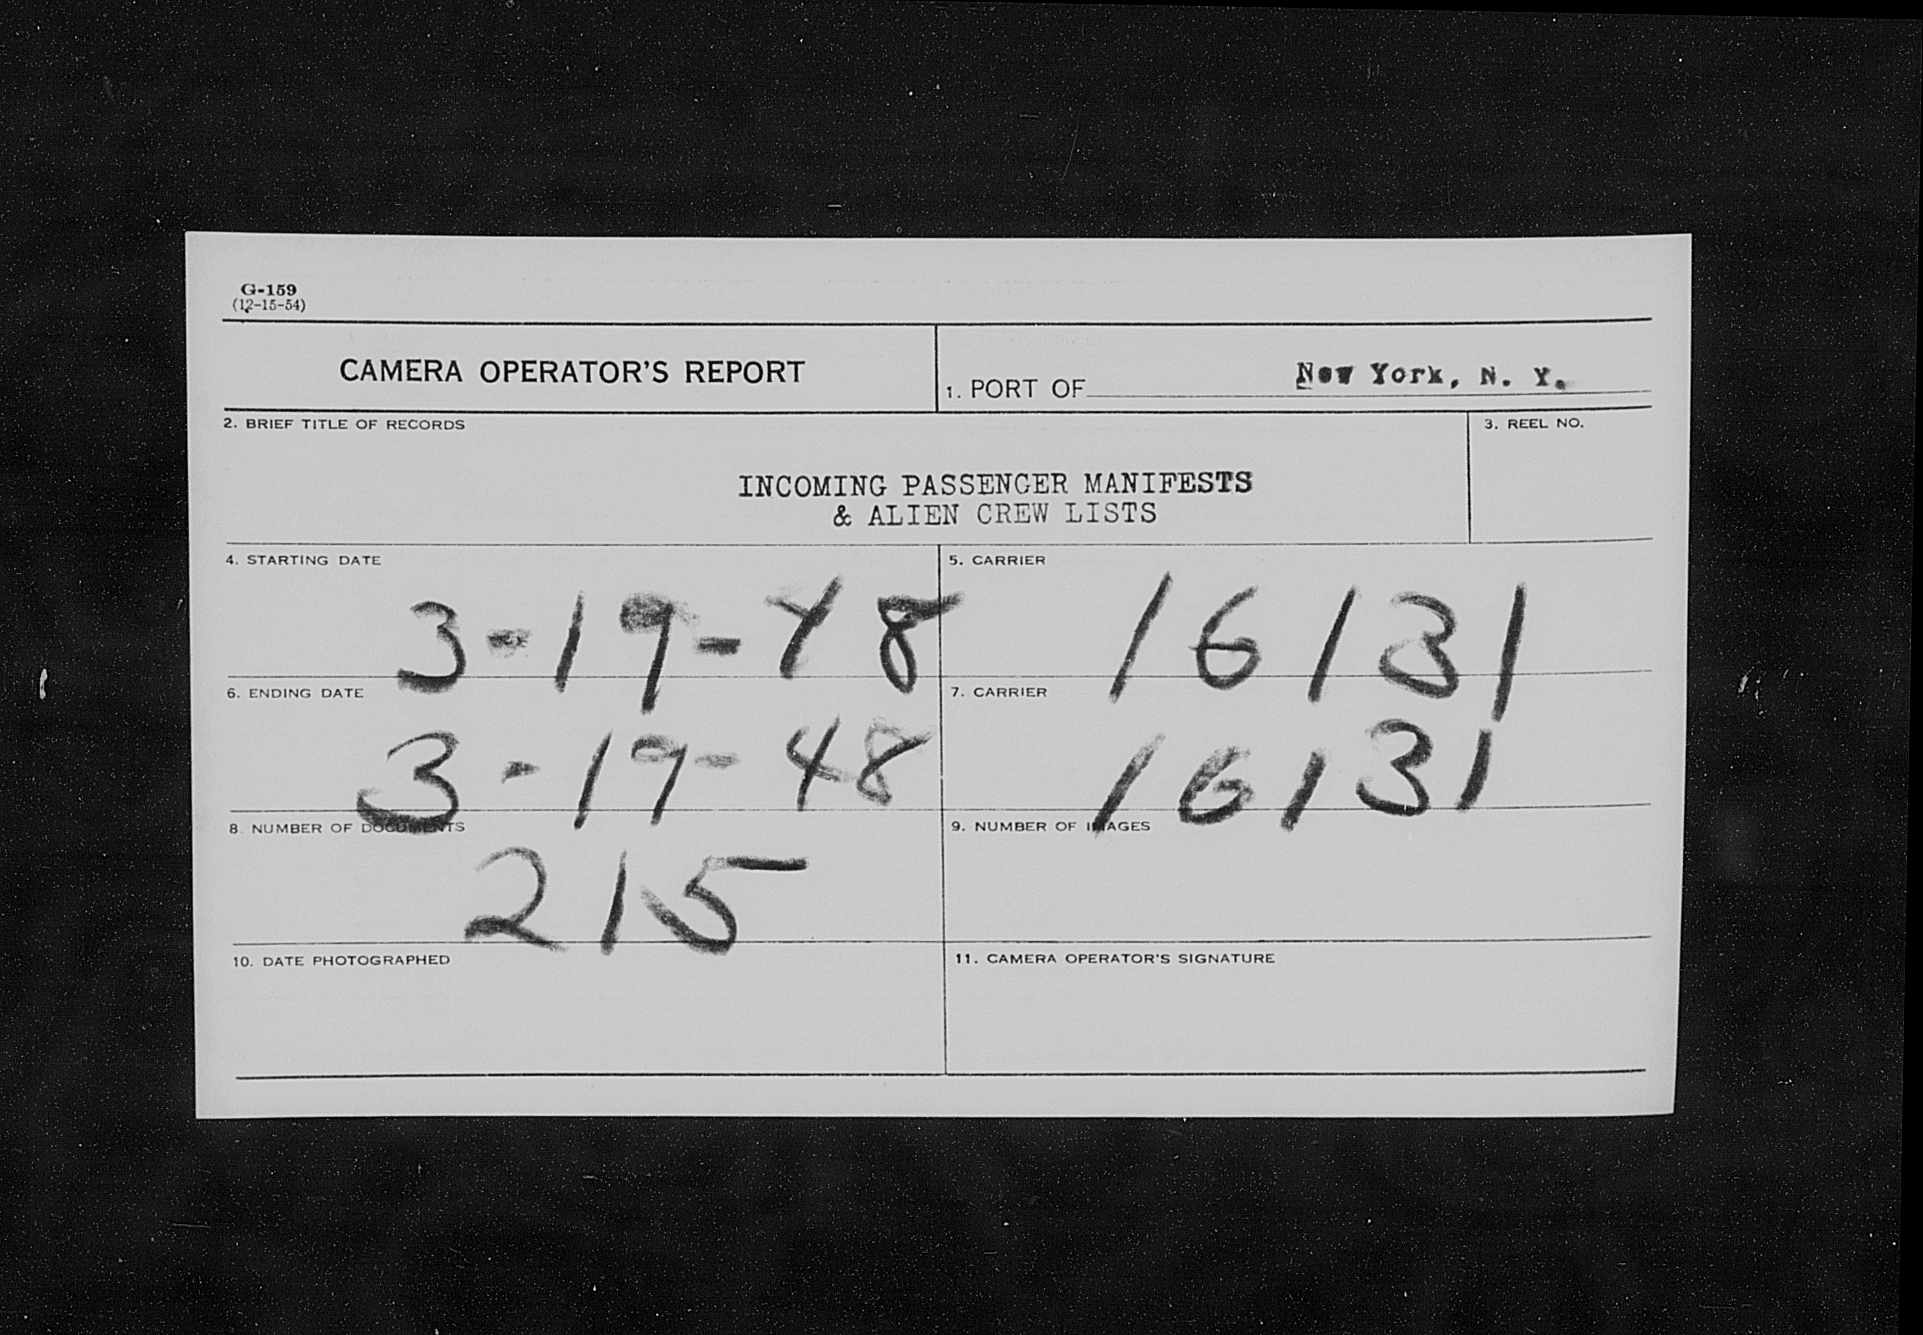 G-159
(12-15-54)
CAMERA OPERATOR'S REPORT
1. PORT OF New York, N. Y.
2. BRIEF TITLE OF RECORDS
3. REEL NO.
INCOMING PASSENGER MANIFESTS
& ALIEN CREW LISTS
4. STARTING DATE
3-19-48
5. CARRIER
16131
6. ENDING DATE
3-19-48
7. CARRIER
16131
8. NUMBER OF DOCUMENTS
215
9. NUMBER OF IMAGES
10. DATE PHOTOGRAPHED
11. CAMERA OPERATOR'S SIGNATURE